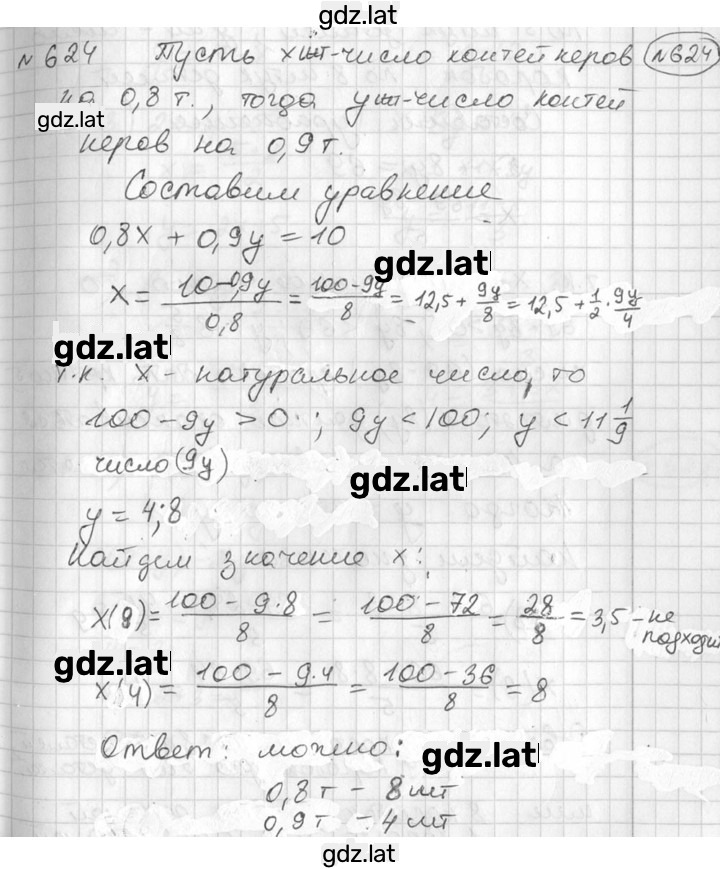 gdz.lat
№624 Пусть x шт-число контейнеров №624
на 0,8 т., тогда y шт-число контей
gdz.lat
неров на 0,9 т.
Составим уравнение
0,8x + 0,9y = 10
gdz.lat
x = 10-0,9y/0,8 = 100-9y/8 = 12,5 + 9y/8 = 12,5 + 1/2 · 9y/4
gdz.lat
т.к. x - натуральное число, то
100 - 9y > 0 ; 9y < 100; y < 11 1/9
число (9y)
gdz.lat
y = 4; 8
Найдем значение x:
x(8) = 100 - 9·8/8 = 100 - 72/8 = 28/8 = 3,5 - не подходит
gdz.lat
x(4) = 100 - 9·4/8 = 100 - 36/8 = 8
Ответ: можно:
gdz.lat
0,8 т - 8 шт
0,9 т - 4 шт
gdz.lat